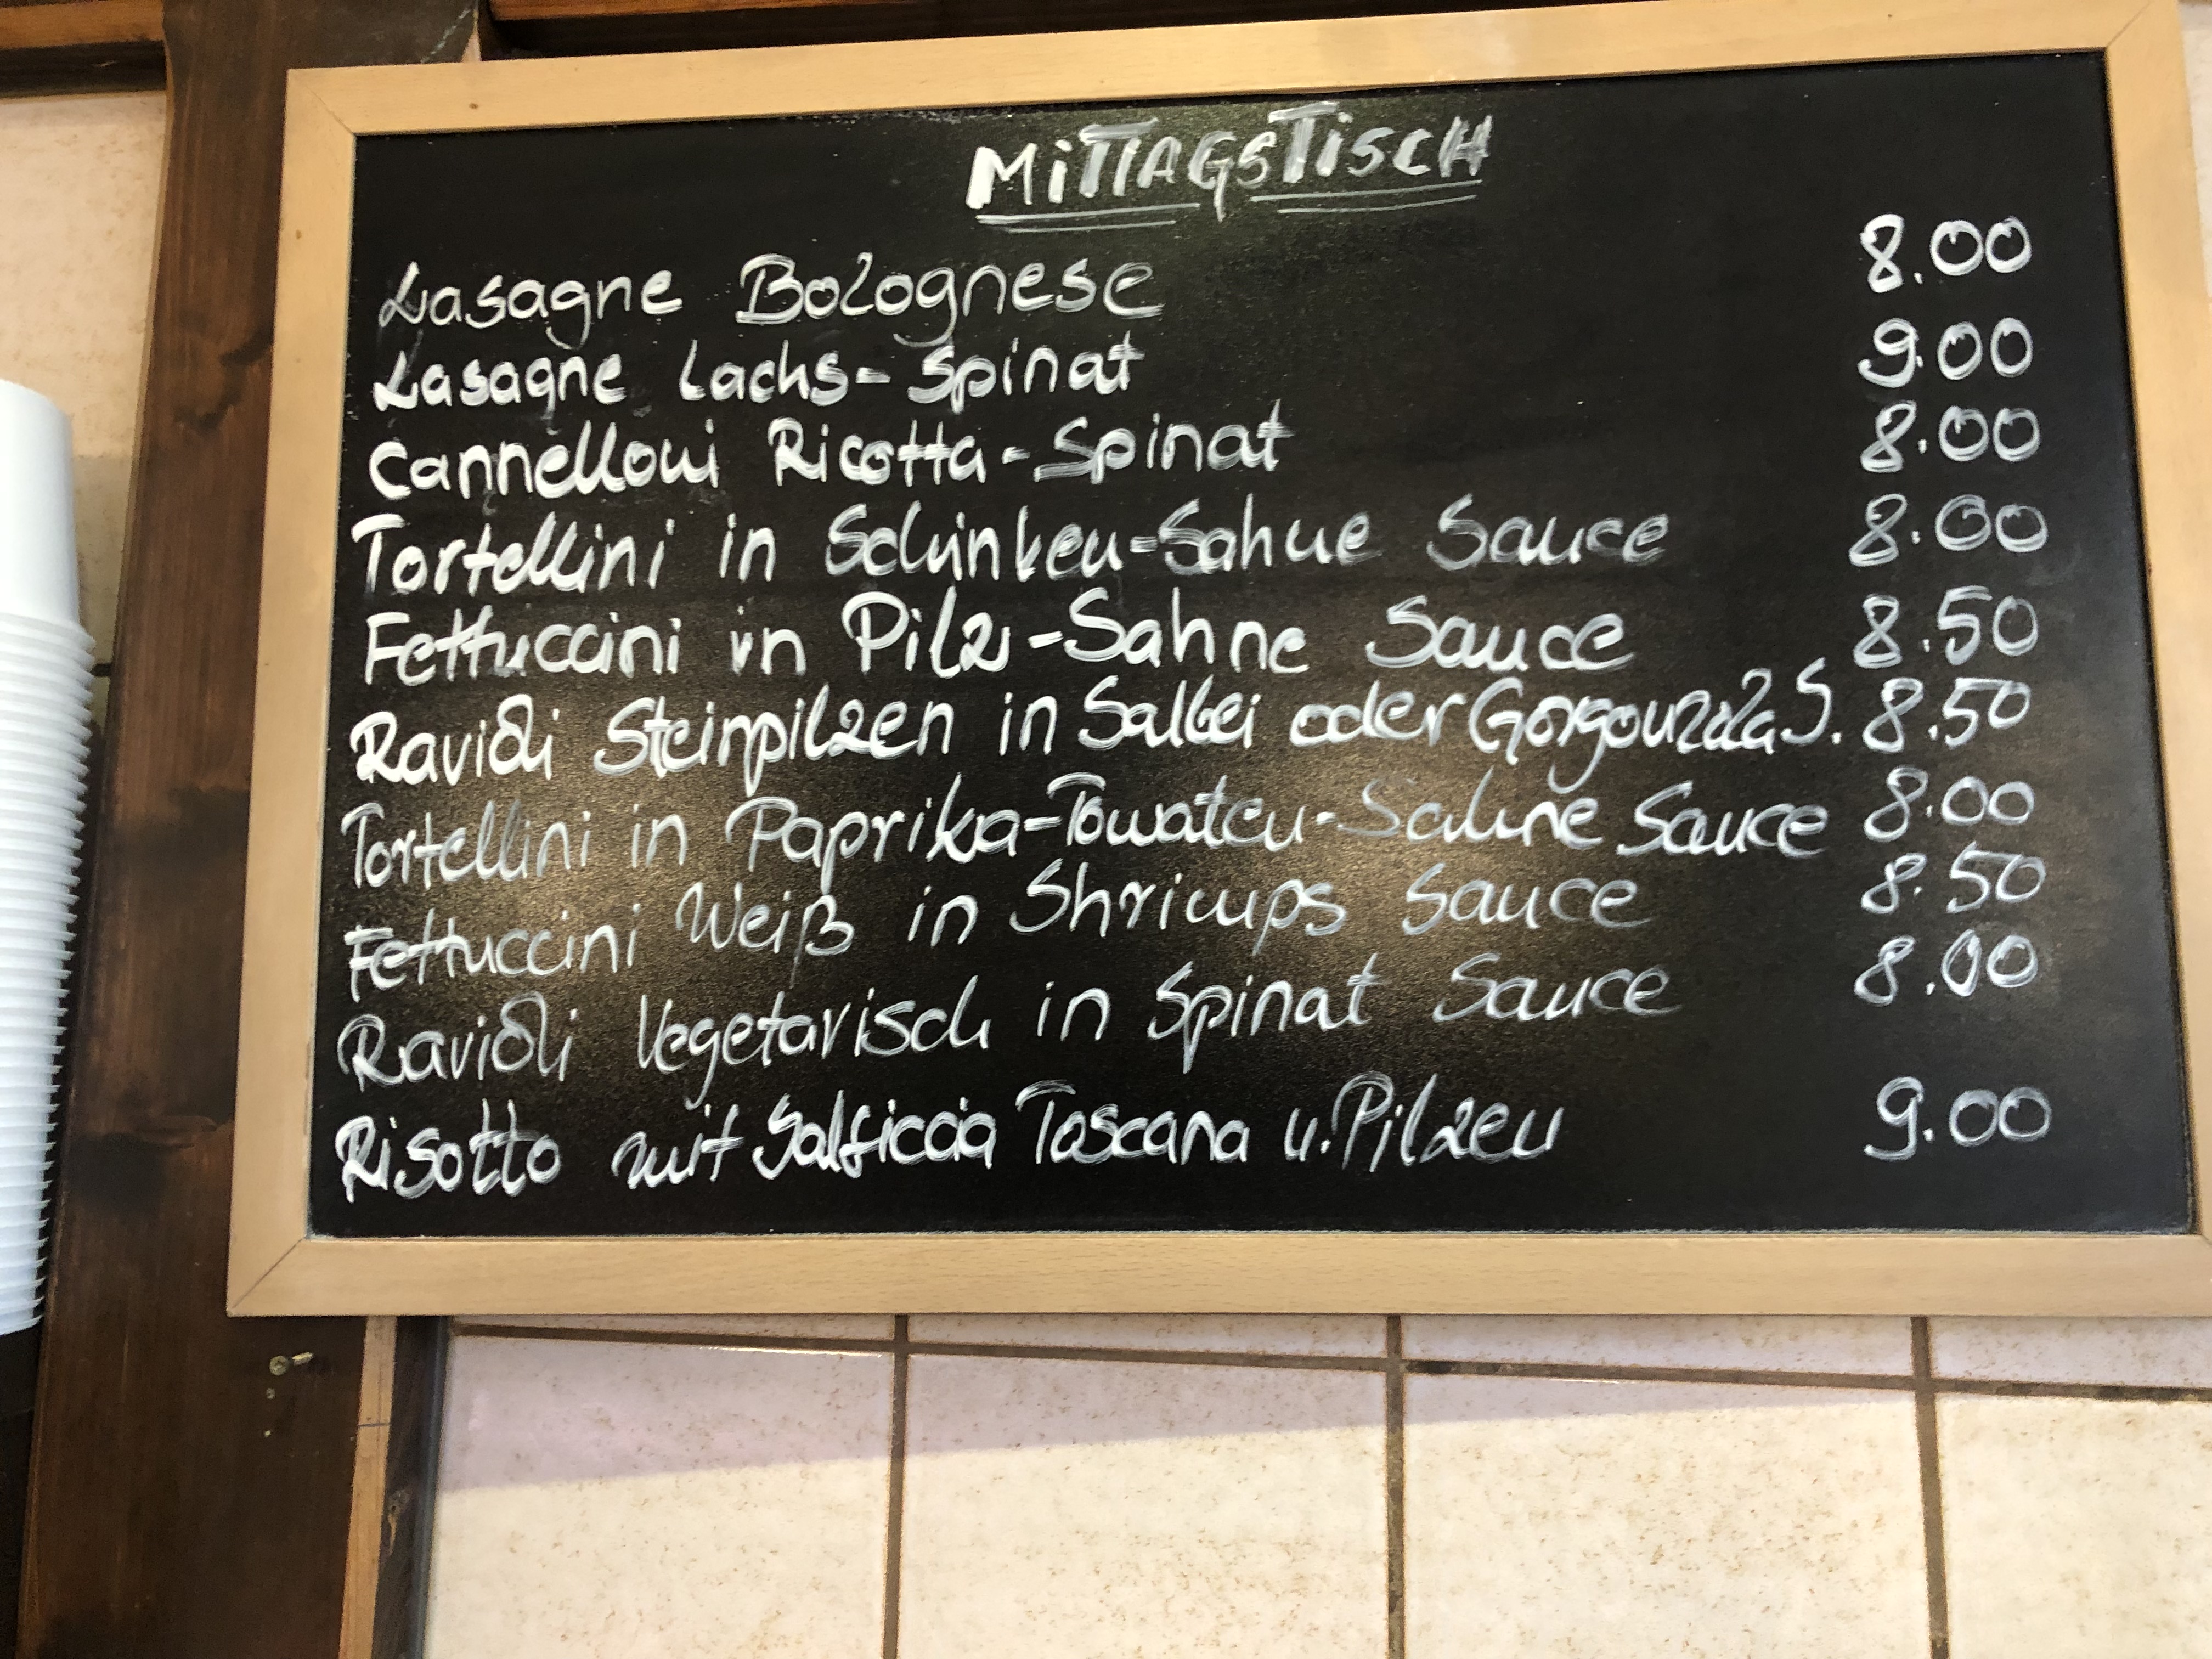 MiTTAGSTiSCH
Lasagne Bolognese 8.00
Lasagne Lachs-Spinat 9.00
Cannelloni Ricotta-Spinat 8.00
Tortellini in Schinken-Sahne Sauce 8.00
Fettuccini in Pilz-Sahne Sauce 8.50
Ravioli Steinpilzen in Salbei oder Gorgonzola S. 8.50
Tortellini in Paprika-Tomaten-Sahne Sauce 8.00
Fettuccini Weiß in Shrimps Sauce 8.50
Ravioli Vegetarisch in Spinat Sauce 8.00
Risotto mit Salsiccia Toscana u. Pilzen 9.00